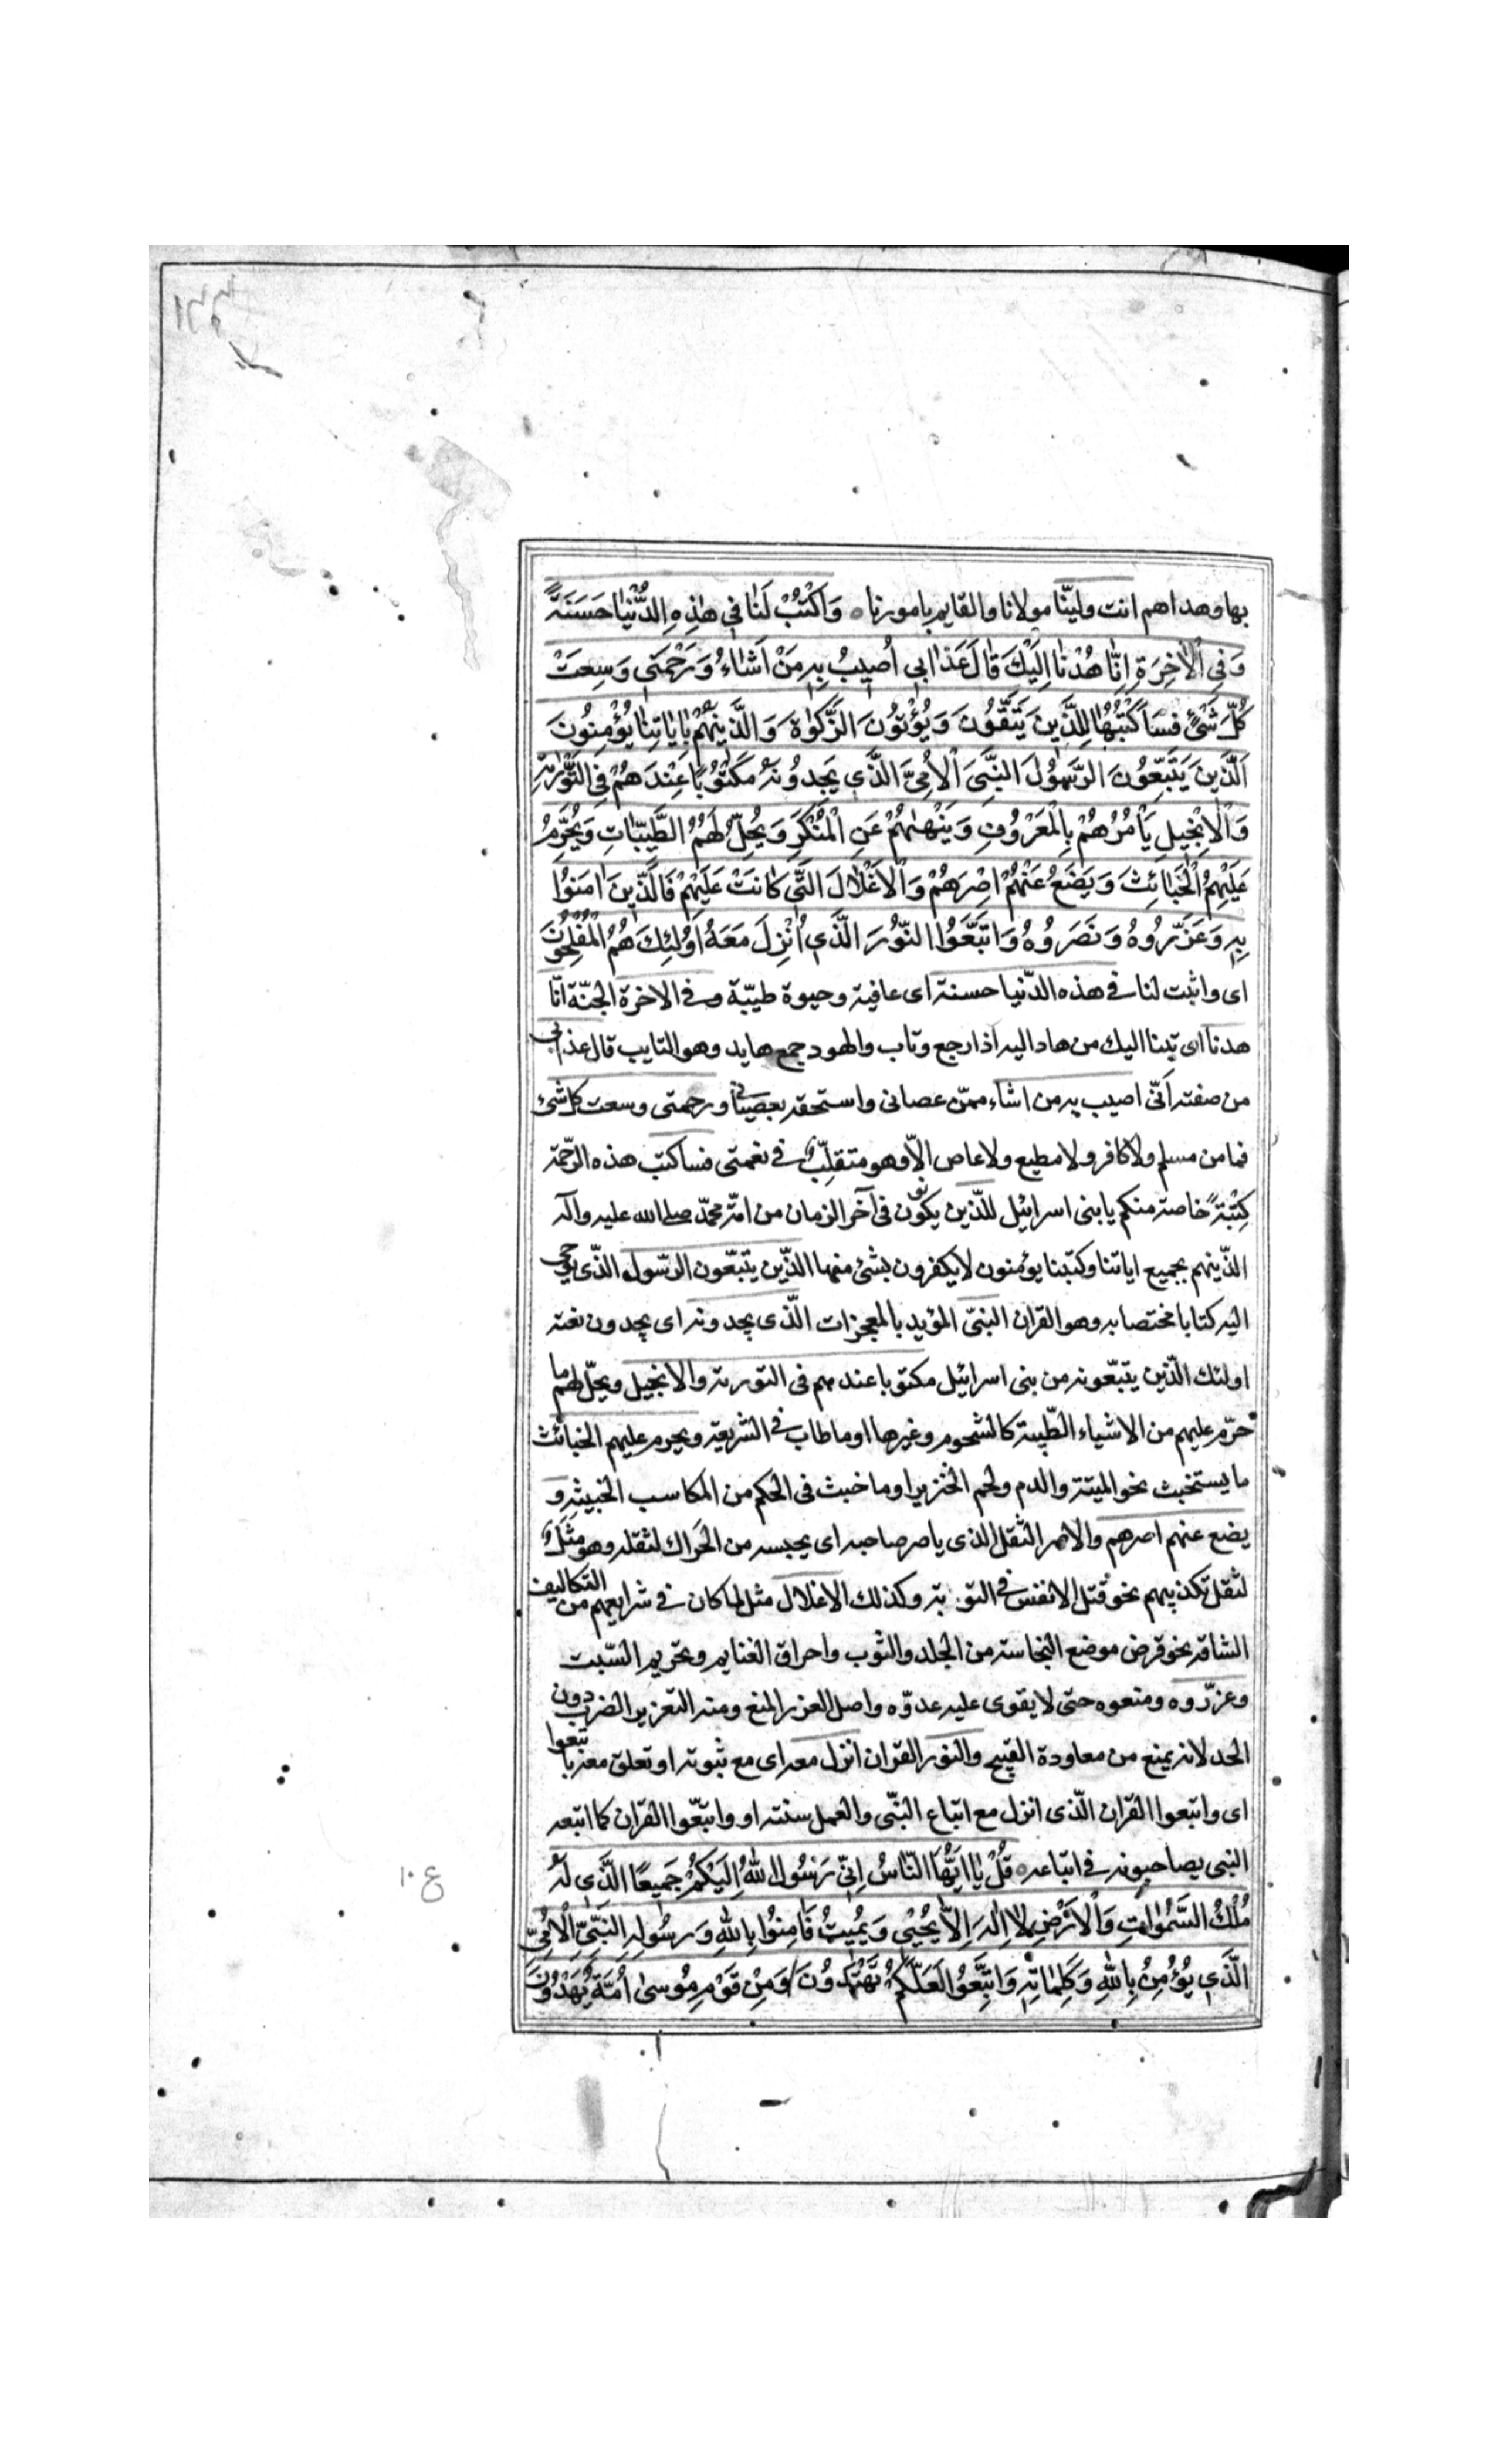 بها وهداهم انت وليّنا مولانا والقايم بامورنا ه وَاكْتُبْ لَنٰا فِي هٰذِهِ الدُّنْيٰا حَسَنَةً
وَفِي الْاٰخِرَةِ اِنّٰا هُدْنٰا اِلَيْكَ قٰالَ عَذٰابِي اُصِيبُ بِهِ مَنْ اَشٰاءُ وَرَحْمَتِي وَسِعَتْ
كُلَّ شَيْءٍ فَسَاَكْتُبُهٰا لِلَّذِينَ يَتَّقُونَ وَيُؤْتُونَ الزَّكٰوةَ وَالَّذِينَ هُمْ بِاٰيٰاتِنٰا يُؤْمِنُونَ
اَلَّذِينَ يَتَّبِعُونَ الرَّسُولَ النَّبِيَّ الْاُمِّيَّ الَّذِي يَجِدُونَهُ مَكْتُوبًا عِنْدَهُمْ فِي التَّوْرٰيةِ
وَالْاِنْجِيلِ يَاْمُرُهُمْ بِالْمَعْرُوفِ وَيَنْهٰيهُمْ عَنِ الْمُنْكَرِ وَيُحِلُّ لَهُمُ الطَّيِّبٰاتِ وَيُحَرِّمُ
عَلَيْهِمُ الْخَبٰائِثَ وَيَضَعُ عَنْهُمْ اِصْرَهُمْ وَالْاَغْلٰالَ الَّتِي كٰانَتْ عَلَيْهِمْ فَالَّذِينَ اٰمَنُوا
بِهِ وَعَزَّرُوهُ وَنَصَرُوهُ وَاتَّبَعُوا النُّورَ الَّذِي اُنْزِلَ مَعَهُ اُولٰئِكَ هُمُ الْمُفْلِحُونَ
اى واثبت لنا في هذه الدّنيا حسنة اى عافية وحيوة طيّبة وفي الاخرة الجنّة انّا
هدنا اى تبنا اليك من هاد اليه اذا رجع وتاب والهود جمع هايد وهو التايب قال عذابي
من صفته اَنّى اصيب به من اشاء ممّن عصانى واستحقه بعصياني ورحمتى وسعت كل شئ
فما من مسلم ولا كافر ولا مطيع ولا عاص الّا وهو متقلّب في نعمتى فساكتب هذه الرّحمة
كِتْبَةً خاصة منكم يا بنى اسرائيل للّذين يكونون في آخر الزمان من امّة محمّد صلى الله عليه وآله
الّذين هم بجميع اياتنا وكتبنا يؤمنون لا يكفرون بشئ منها الّذين يتبّعون الرّسول الّذى يوحى
اليه كتابا مختصا به وهو القران النبىّ المؤيد بالمعجزات الّذى يجدونه اى يجدون نعته
اولئك الّذين يتبّعونه من بنى اسرائيل مكتوبا عندهم فى التورية والانجيل ويحلّ لهم ما
حرّم عليهم من الاشياء الطّيبة كالشحوم وغيرها او ما طاب في الشريعة ويحرم عليهم الخبائث
ما يستخبث نحو الميتة والدم ولحم الخنزير او ما خبث فى الحكم من المكاسب الخبيثة و
يضع عنهم اصرهم والاصر الثقل الذى ياصر صاحبه اى يحبسه من الحَراك لثقله وهو مثل
لثقل تكذيبهم نحو قتل الانفس في التوبة وكذلك الاغلال مثل لما كان في شرايعهم من التكاليف
الشاقة نحو قرض موضع النجاسة من الجلد والثوب واحراق الغنايم وتحريم السّبت
وعزّروه ومنعوه حتى لا يقوى عليه عدوّه واصل العزر المنع ومنه التعزير الضرب دون
الحد لانه يمنع من معاودة القبيح والنور القران انزل معه اى مع نبوته او تعلق معه باتبعوا
اى واتبعوا القران الّذى انزل مع اتباع النبّى والعمل سنته او واتبّعوا القران كما اتبعه
النبى يصاحبونه في اتباعه ه قُلْ يٰا اَيُّهَا النّٰاسُ اِنِّي رَسُولُ اللهِ اِلَيْكُمْ جَمِيعًا الَّذِي لَهُ
مُلْكُ السَّمٰوٰاتِ وَالْاَرْضِ لٰا اِلٰهَ اِلّٰا يُحْيِي وَيُمِيتُ فَاٰمِنُوا بِاللهِ وَرَسُولِهِ النَّبِيِّ الْاُمِّيِّ
الَّذِي يُؤْمِنُ بِاللهِ وَكَلِمٰاتِهِ وَاتَّبِعُوا لَعَلَّكُمْ تَهْتَدُونَ وَمِنْ قَوْمِ مُوسٰى اُمَّةٌ يَهْدُونَ
ع ١٠